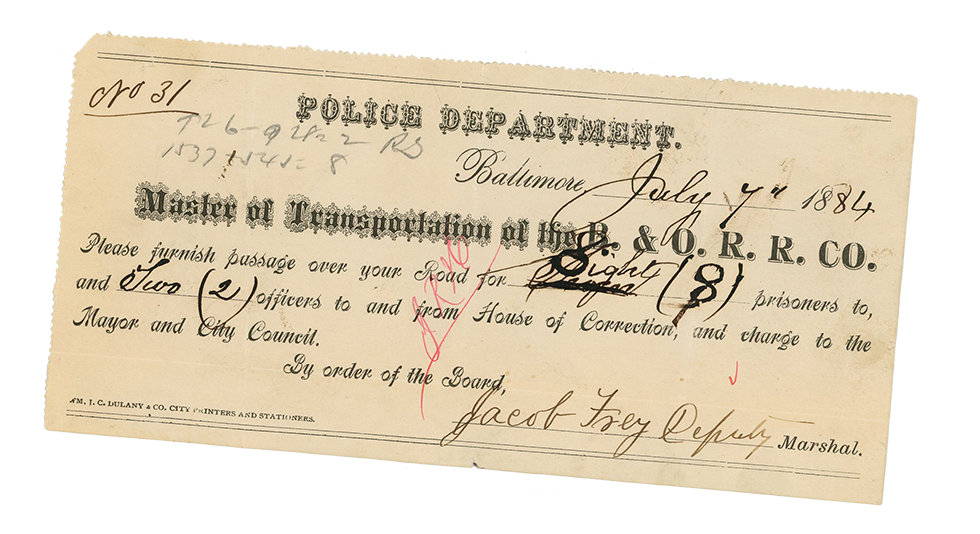 No 31
POLICE DEPARTMENT.
1537 1545 = 8
Baltimore, July 7" 1884
Master of Transportation of the B. & O. R. R. CO.
Please furnish passage over your Road for Eight (8) prisoners to,
and Two (2) officers to and from House of Correction, and charge to the
Mayor and City Council.
By order of the Board,
Jacob Frey Deputy Marshal.
WM. J. C. DULANY & CO. CITY PRINTERS AND STATIONERS.